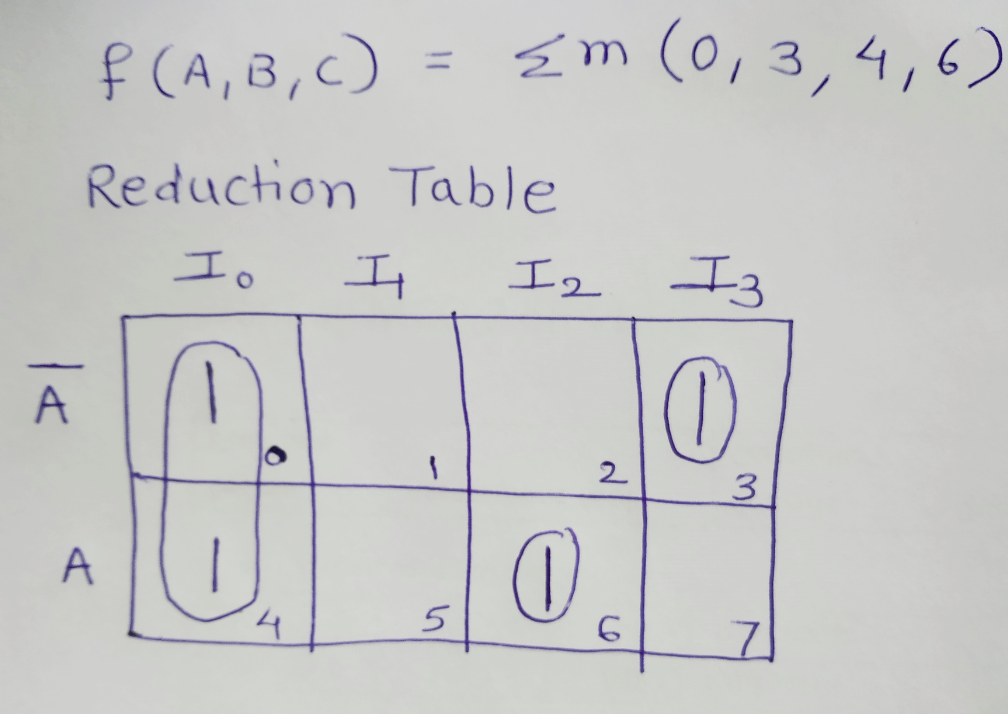 f(A,B,C) = Σm(0,3,4,6)
Reduction Table
I₀ I₁ I₂ I₃
A̅ 1 0 1 2 1 3
A 1 4 5 1 6 7